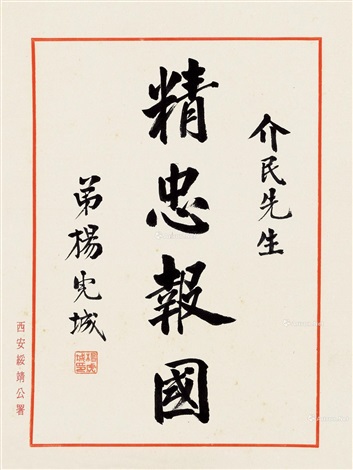 介民先生
精忠報國
弟楊虎城
西安綏靖公署